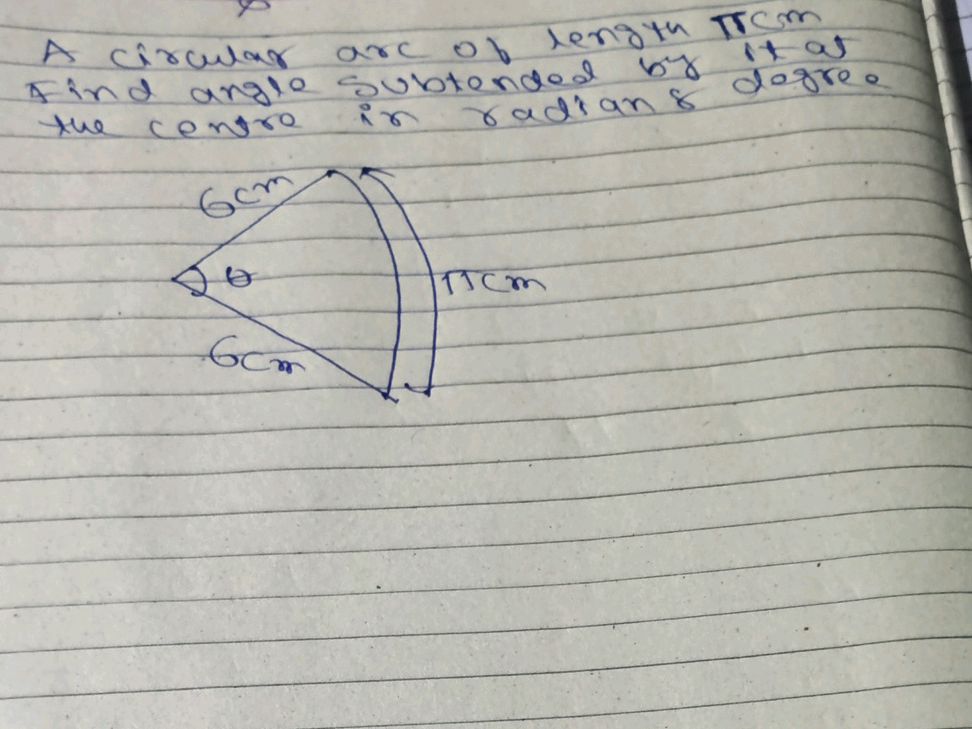 A circular arc of length πcm
Find angle subtended by it at
the centre in radian & degree
6cm
θ
πcm
6cm